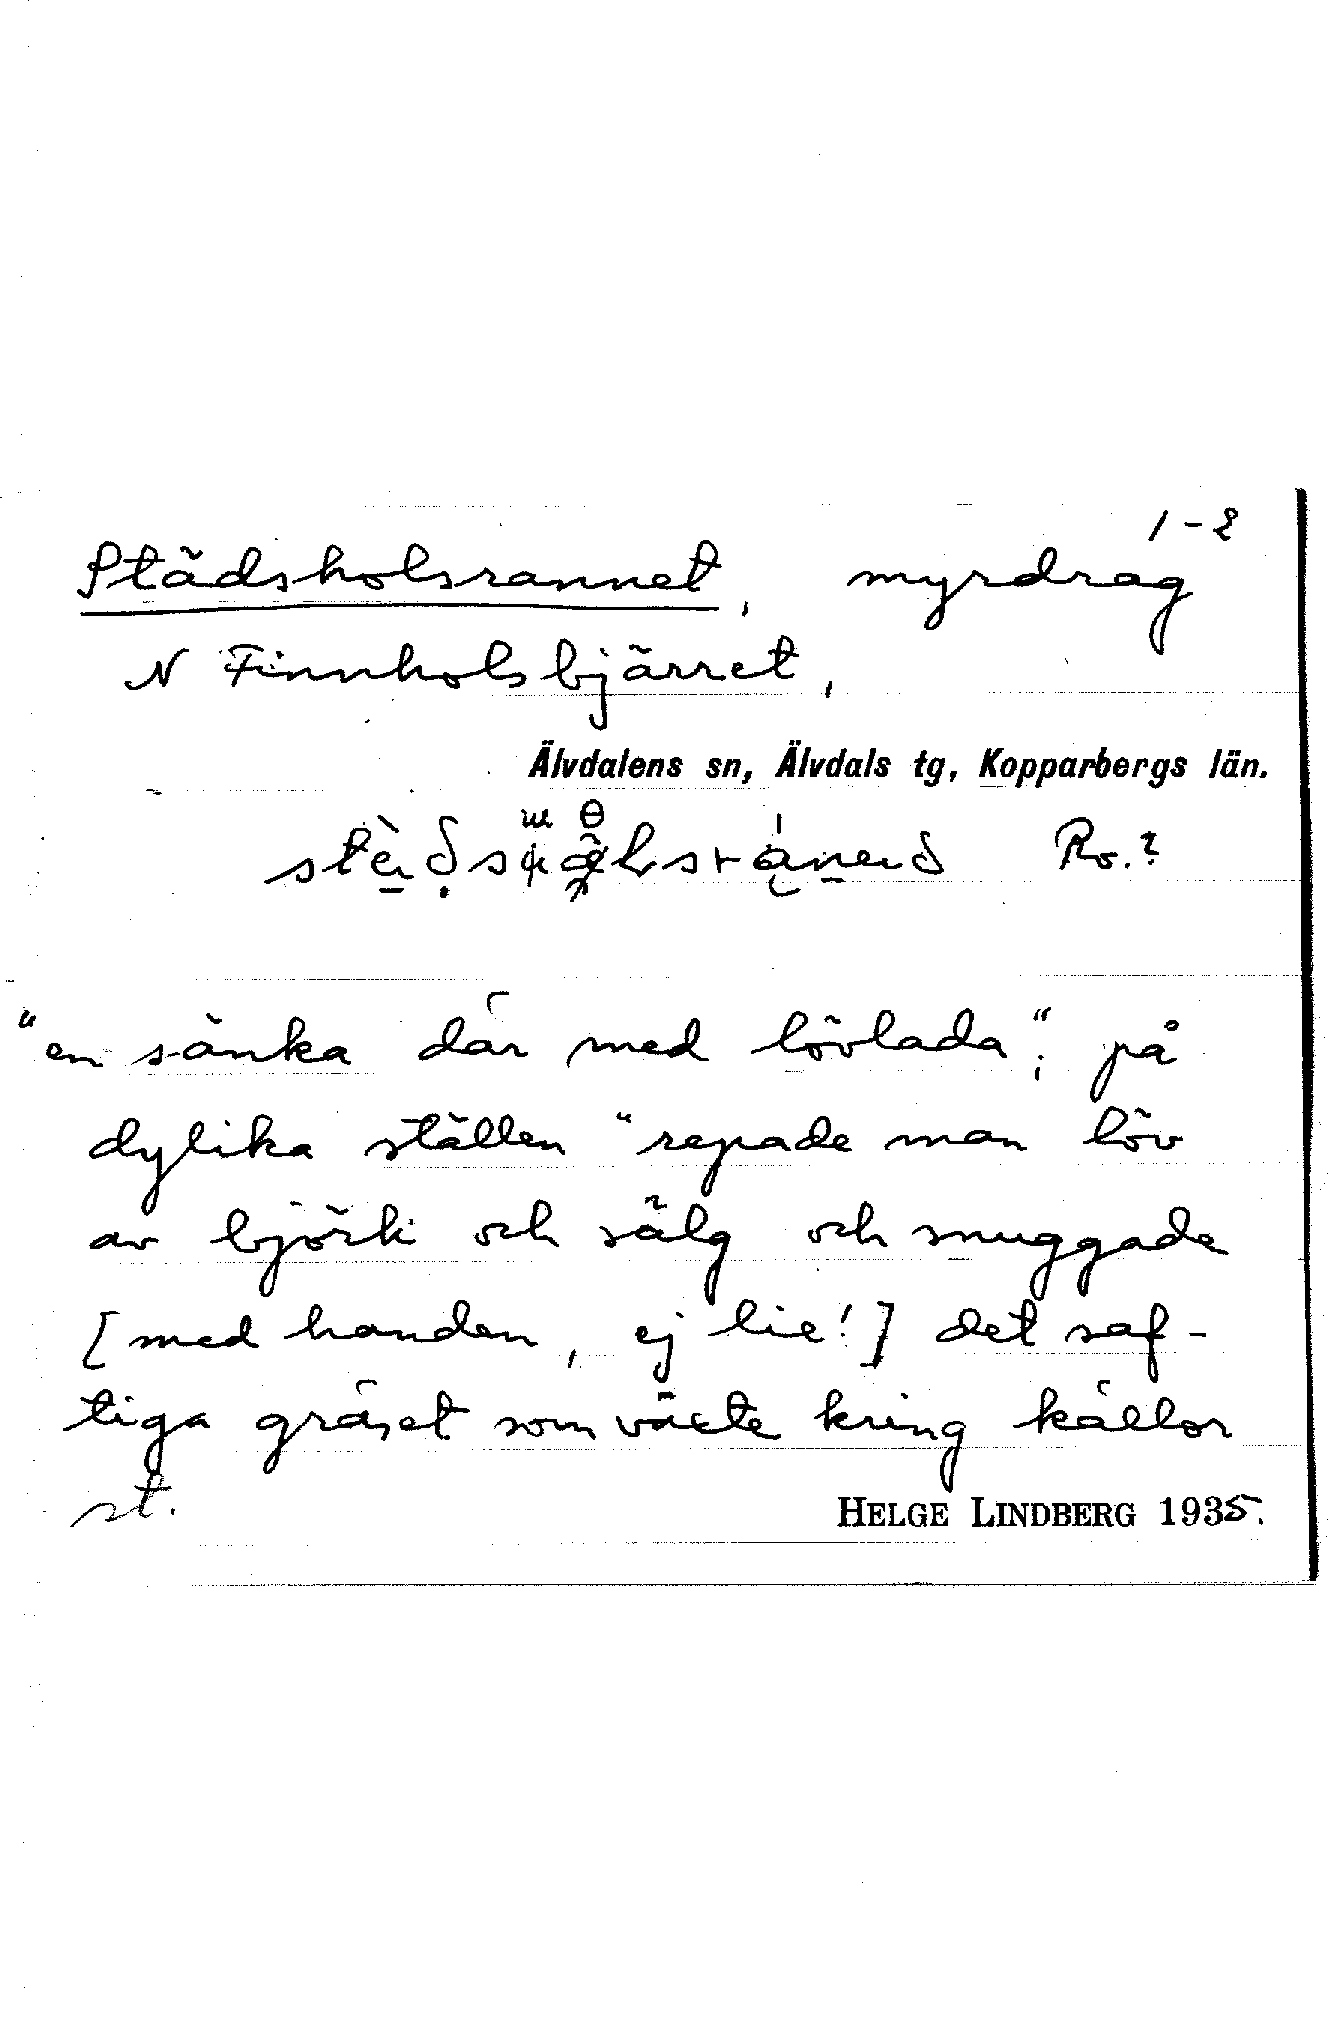 1-2
Städsholsrannet, myrdrag
N Finnholsbjärret,
Älvdalens sn, Älvdals tg, Kopparbergs län.
Ro.?
"en sänka där med lövlada"; på
dylika ställen "repade man löv
av björk och sälg och snuggade
[med handen, ej lie!] det saf-
tiga gräset som växte kring källor
st.
HELGE LINDBERG 1935.